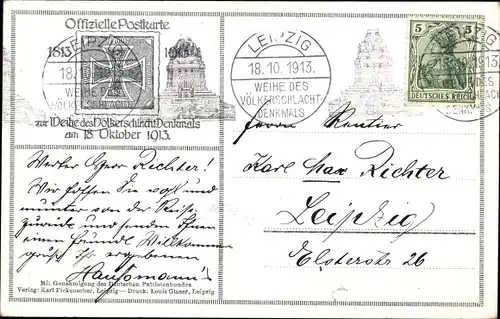 Offizielle Postkarte
1813 1913
LEIPZIG
18.10.1913.
WEIHE DES
VÖLKERSCHLACHT-
DENKMALS
zur Weihe des Völkerschlacht Denkmals
am 18. Oktober 1913.
LEIPZIG
18.10.1913.
WEIHE DES
VÖLKERSCHLACHT-
DENKMALS
5 5
DEUTSCHES REICH
Herrn Rentier
Karl Max Richter
Leipzig
Elsterstr 26
Werter Herr Richter!
Wir hoffen Sie wohl und
munter von der Reise
zurück und senden Ihnen
einen Freundl Willkommen
grüßt Ihr ergebener
Haussmann
Mit Genehmigung des Deutschen Patriotenbundes
Verlag: Karl Fickenscher, Leipzig — Druck: Louis Glaser, Leipzig